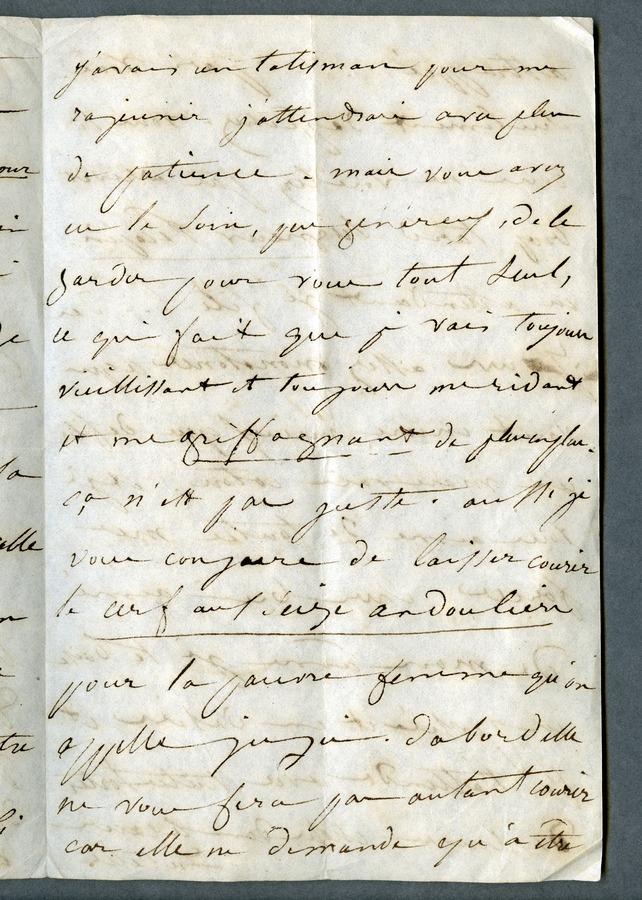 j'avais un talisman pour me
rajeunir j'attendrais avec plus
de patience. mais vous avez
eu le soin, peu généreux, de le
garder pour vous tout seul,
ce qui fait que je vais toujours
vieillissant et toujours me ridant
et me griffagnant de plus en plus.
ça n'est pas juste. aussi je
vous conjure de laisser courir
le cerf aux seize andouliers
pour la pauvre femme qu'on
appelle juju. d'abord elle
ne vous fera pas autant courir
car elle ne demande qu'à être